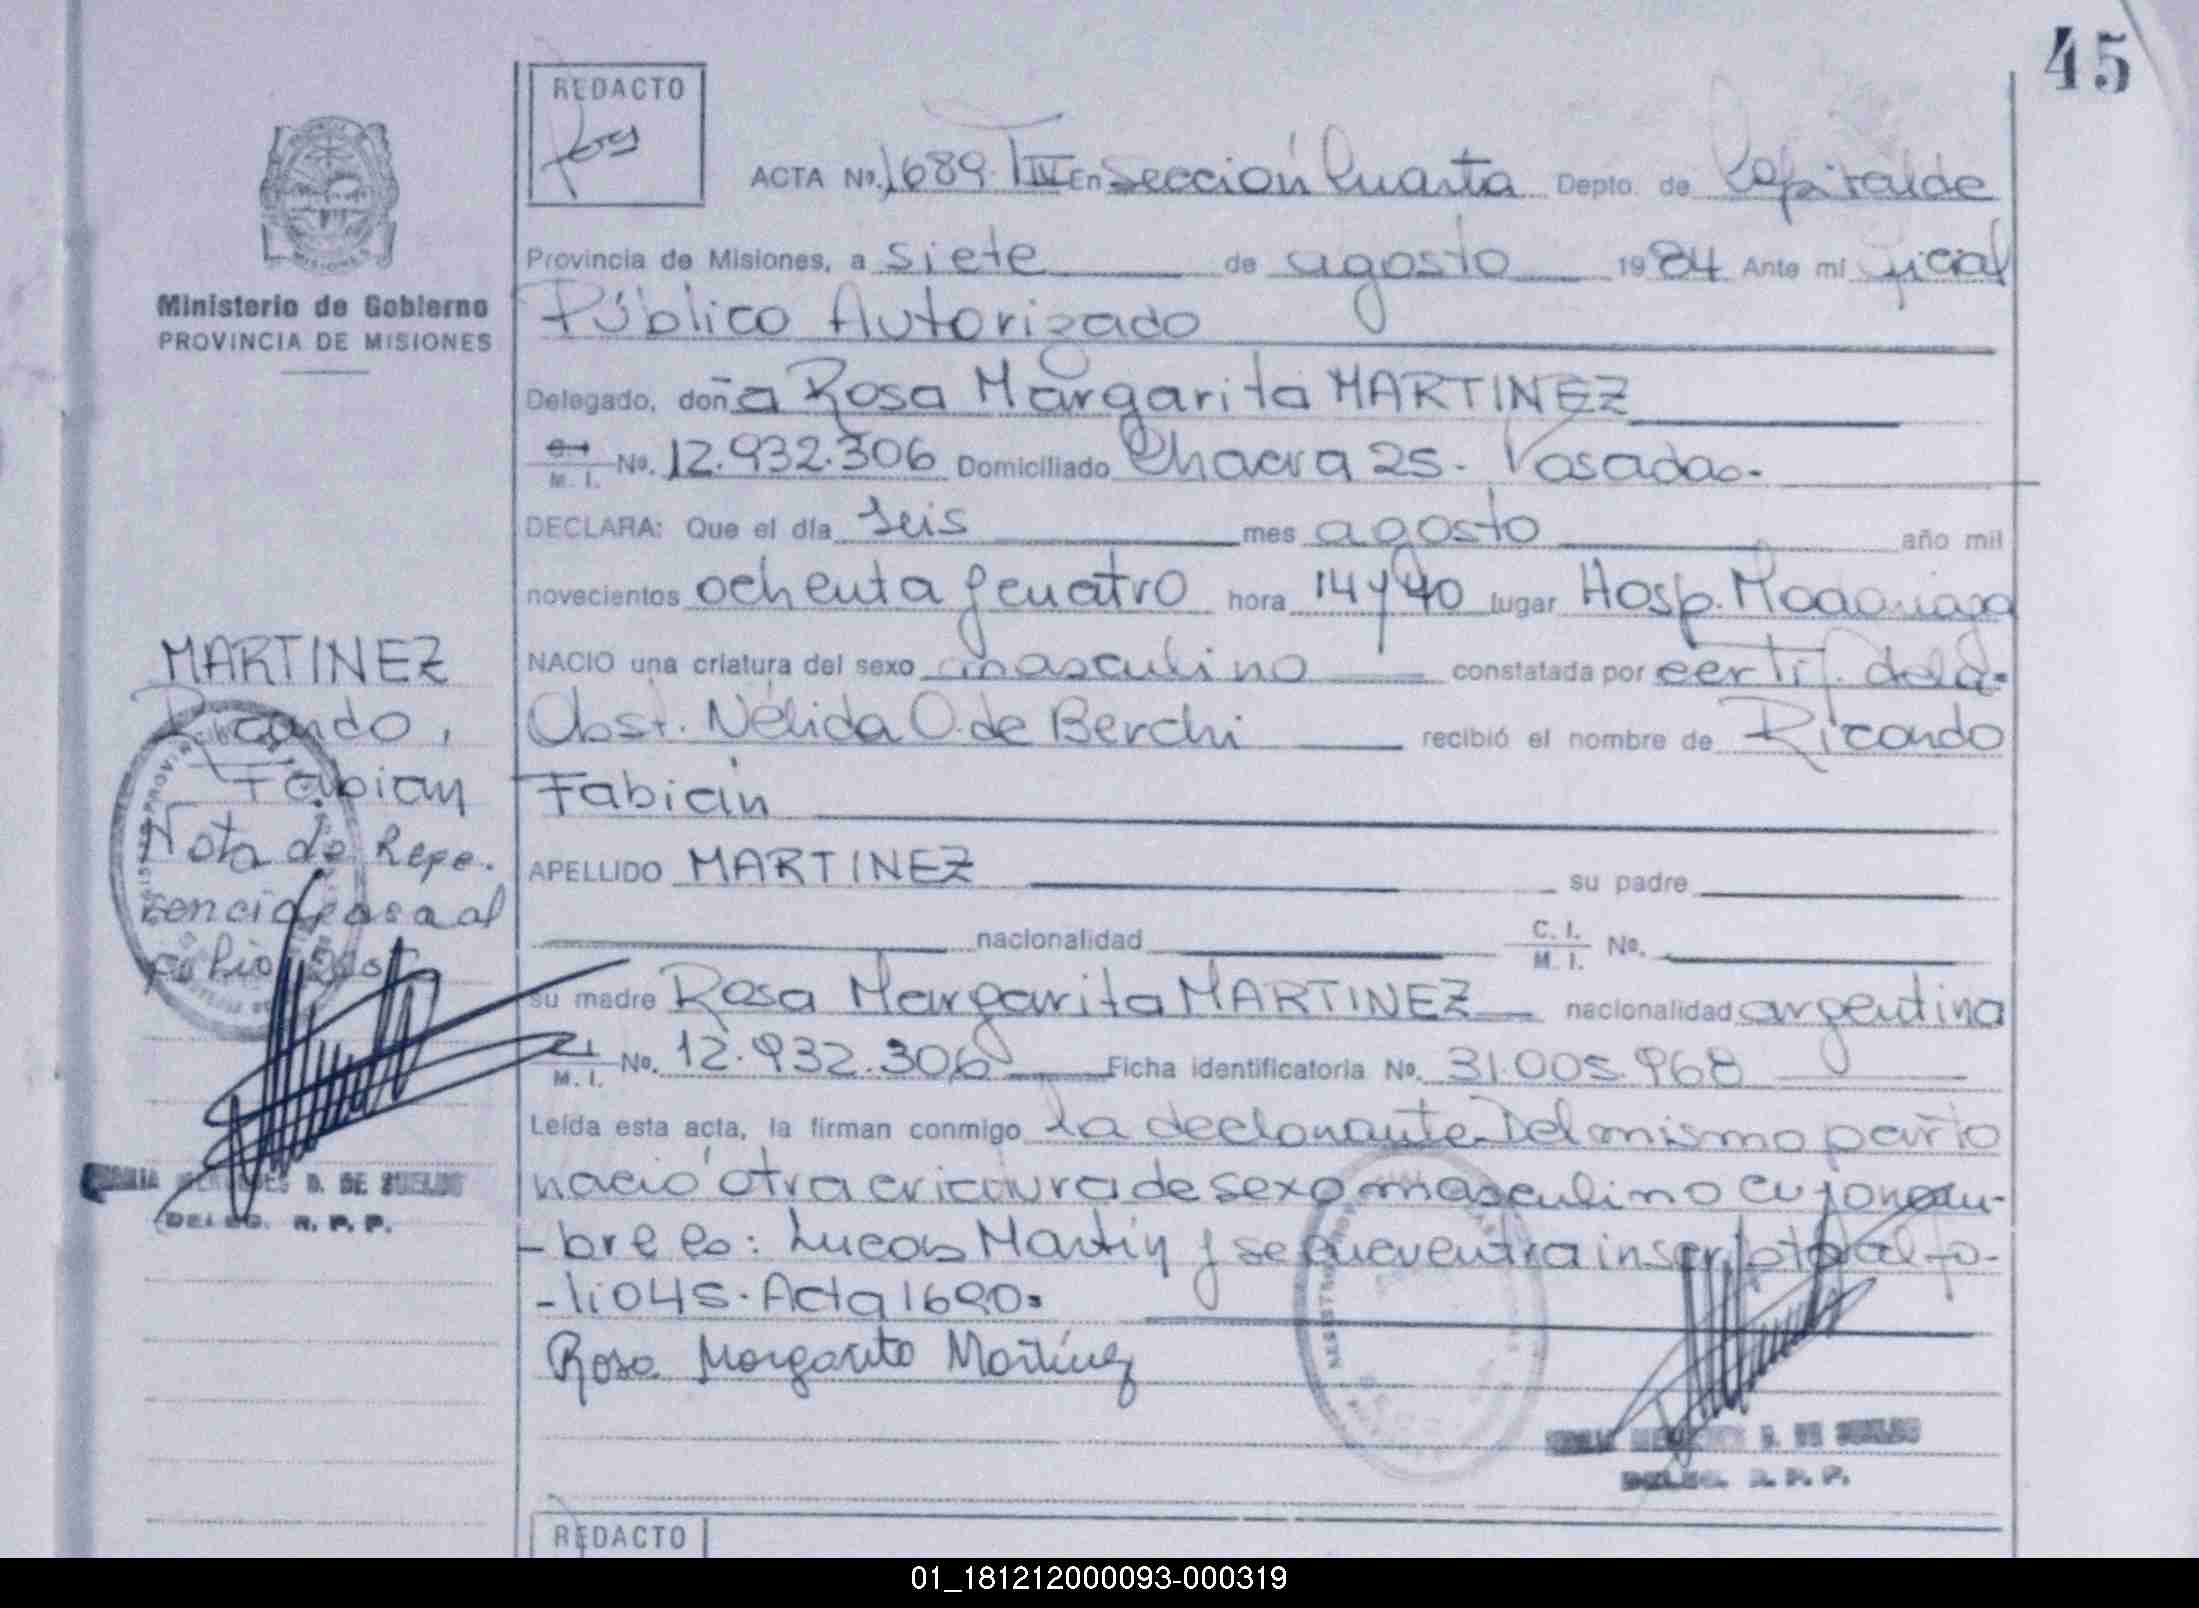 45
REDACTO
ACTA No. 1689. T IV En Sección Cuarta Depto. de Capital de
Provincia de Misiones, a siete de agosto 1984 Ante mí Oficial
Público Autorizado
Delegado, doña Rosa Margarita MARTINEZ
M. I. No. 12.932.306 Domiciliado Chacra 25. Posadas.
DECLARA: Que el día seis mes agosto año mil
novecientos ochenta y cuatro hora 14 y 40 lugar Hosp. Madariaga
NACIO una criatura del sexo masculino constatada por certif. de la
Obst. Nélida O. de Berchi recibió el nombre de Ricardo
Fabián
APELLIDO MARTINEZ su padre
nacionalidad C. I. M. I. No.
su madre Rosa Margarita MARTINEZ nacionalidad argentina
M. I. No. 12.932.306 Ficha identificatoria No. 31.005.968
Leída esta acta, la firman conmigo la declarante. Del mismo parto
nació otra criatura de sexo masculino cuyo nom-
-bre es: Lucas Martín y se encuentra inscripto al fo-
-lio 045. Acta 1690.
Rosa Margarita Martínez
DELEG. R. P. P.
REDACTO
MISIONES
Ministerio de Gobierno
PROVINCIA DE MISIONES
MARTINEZ
Ricardo,
Fabián
Nota de Refe.
rencia pasa al
folio
D. DE SUELDO
DELEG. R. P. P.
01_181212000093-000319